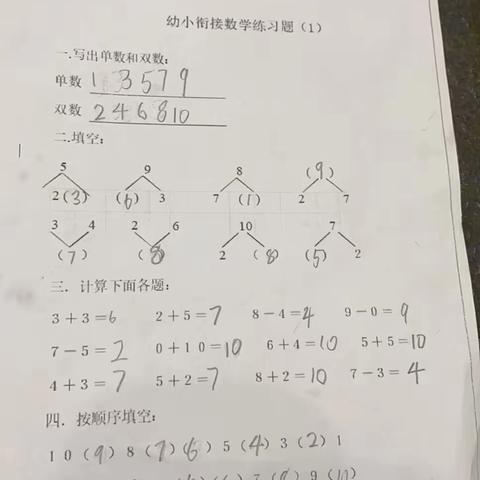 幼小衔接数学练习题（1）
一.写出单数和双数：
单数 1 3 5 7 9
双数 2 4 6 8 10
二.填空：
5 9 8 （9）
2（3） （6） 3 7 （1） 2 7
3 4 2 6 10 7
（7） （8） 2 （8） （5） 2
三．计算下面各题：
3＋3＝6 2＋5＝7 8－4＝4 9－0＝9
7－5＝2 0＋10＝10 6＋4＝10 5＋5＝10
4＋3＝7 5＋2＝7 8＋2＝10 7－3＝4
四．按顺序填空：
10（9）8（7）（6）5（4）3（2）1
7（8）9（10）